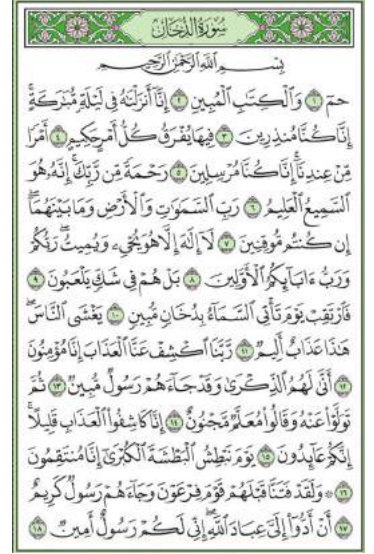 سُورَةُ الدُّخَانِ
بِسْمِ اللَّهِ الرَّحْمَٰنِ الرَّحِيمِ
حمٓ ١ وَالْكِتَابِ الْمُبِينِ ٢ إِنَّا أَنزَلْنَاهُ فِي لَيْلَةٍ مُّبَارَكَةٍ ۚ
إِنَّا كُنَّا مُنذِرِينَ ٣ فِيهَا يُفْرَقُ كُلُّ أَمْرٍ حَكِيمٍ ٤ أَمْرًا
مِّنْ عِندِنَا ۚ إِنَّا كُنَّا مُرْسِلِينَ ٥ رَحْمَةً مِّن رَّبِّكَ ۚ إِنَّهُ هُوَ
السَّمِيعُ الْعَلِيمُ ٦ رَبِّ السَّمَاوَاتِ وَالْأَرْضِ وَمَا بَيْنَهُمَا ۖ
إِن كُنتُم مُّوقِنِينَ ٧ لَا إِلَٰهَ إِلَّا هُوَ يُحْيِي وَيُمِيتُ ۖ رَبُّكُمْ
وَرَبُّ ءَابَائِكُمُ الْأَوَّلِينَ ٨ بَلْ هُمْ فِي شَكٍّ يَلْعَبُونَ ٩
فَارْتَقِبْ يَوْمَ تَأْتِي السَّمَاءُ بِدُخَانٍ مُّبِينٍ ١٠ يَغْشَى النَّاسَ ۖ
هَٰذَا عَذَابٌ أَلِيمٌ ١١ رَّبَّنَا اكْشِفْ عَنَّا الْعَذَابَ إِنَّا مُؤْمِنُونَ
١٢ أَنَّىٰ لَهُمُ الذِّكْرَىٰ وَقَدْ جَاءَهُمْ رَسُولٌ مُّبِينٌ ١٣ ثُمَّ
تَوَلَّوْا عَنْهُ وَقَالُوا مُعَلَّمٌ مَّجْنُونٌ ١٤ إِنَّا كَاشِفُوا الْعَذَابِ قَلِيلًا ۚ
إِنَّكُمْ عَائِدُونَ ١٥ يَوْمَ نَبْطِشُ الْبَطْشَةَ الْكُبْرَىٰ إِنَّا مُنتَقِمُونَ
١٦ ۞ وَلَقَدْ فَتَنَّا قَبْلَهُمْ قَوْمَ فِرْعَوْنَ وَجَاءَهُمْ رَسُولٌ كَرِيمٌ
١٧ أَنْ أَدُّوا إِلَيَّ عِبَادَ اللَّهِ ۖ إِنِّي لَكُمْ رَسُولٌ أَمِينٌ ١٨